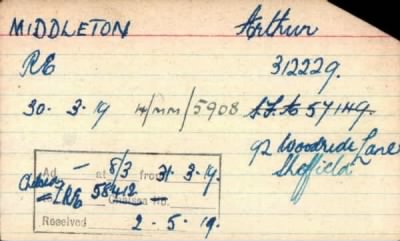 MIDDLETON Arthur
RE 312229.
30. 3. 19 14/MM/5908 A.F.A 57149.
92 Woodside Lane
Sheffield
Ad — at 8/3 from 31.3.19.
Chelsea
RE 58412 Chelsea No.
Received 2.5.19.